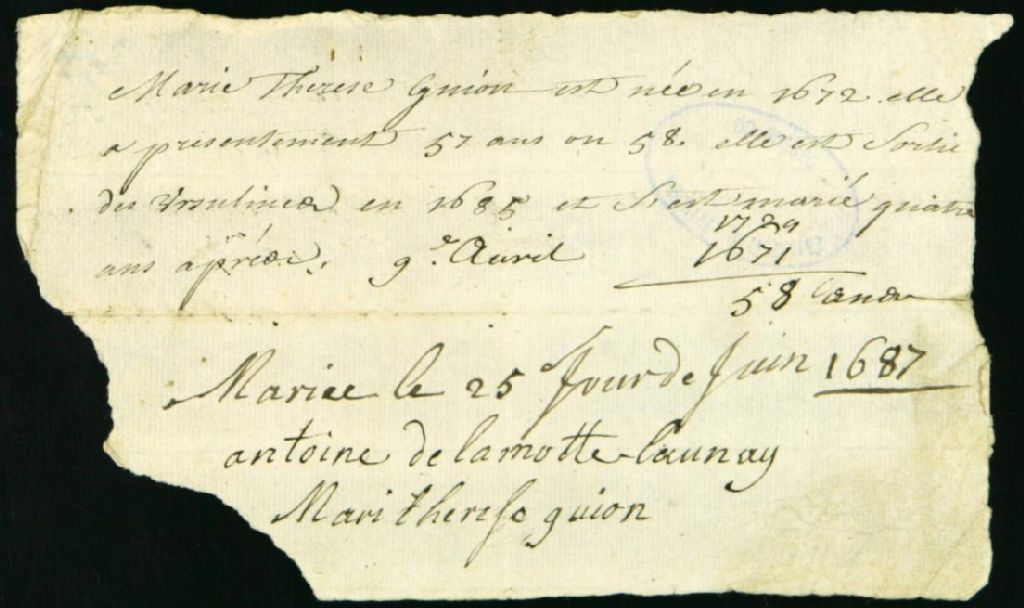 Marie Therese Guion est née en 1672. elle
a presentement 57 ans ou 58. elle est Sortie
des Ursulines en 1685 et S'est marié quatre
ans aprés. 9.e Avril
1729
1671
58 ans
Mariee le 25e Jour de Juin 1687
antoine de lamotte launay
Mari therese guion